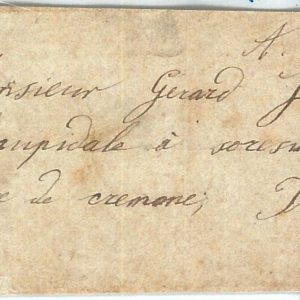 A.
nsieur Gerard J
aupidale à soresi
e de cremone,